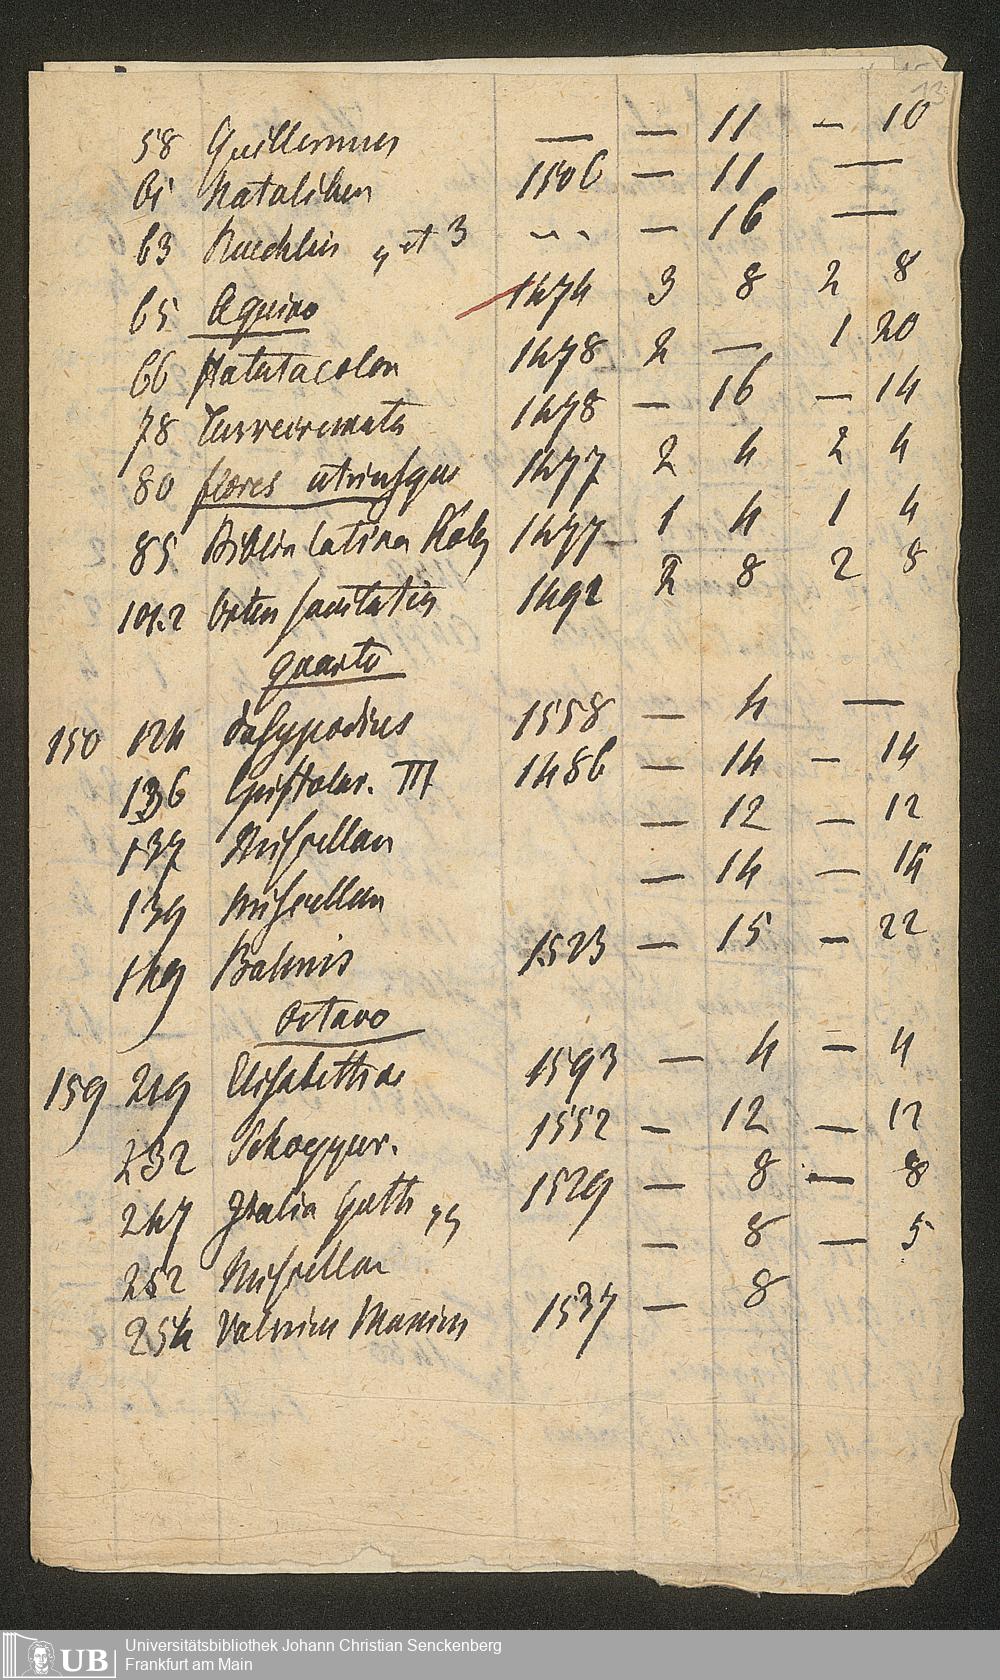 13
58 Guillermus — — 11 — 10
61 Natalibus 1506 — 11 —
63 et 3 — 16 —
65 Aquino 1474 3 8 2 8
66 Statuta colon 1478 2 — 1 20
78 Turrecremata 1478 — 16 — 14
80 flores utriusque 1477 2 4 2 4
85 Biblia latina 1477 1 4 1 4
101.2 Ortus sanitatis 1492 2 8 2 8
Quarto
150 124 Dasypodius 1558 — 4 —
136 Epistolar. III 1486 — 14 — 14
137 Miscellan — 12 — 12
139 Miscellan — 14 — 14
149 1523 — 15 — 22
Octavo
159 219 Elisabethae 1593 — 4 — 4
232 Schopper. 1552 — 12 — 12
247 Italia Goth 1529 — 8 — 8
252 Miscellan — 8 — 5
254 Valerius Maxim 1537 — 8
UB
Universitätsbibliothek Johann Christian Senckenberg
Frankfurt am Main